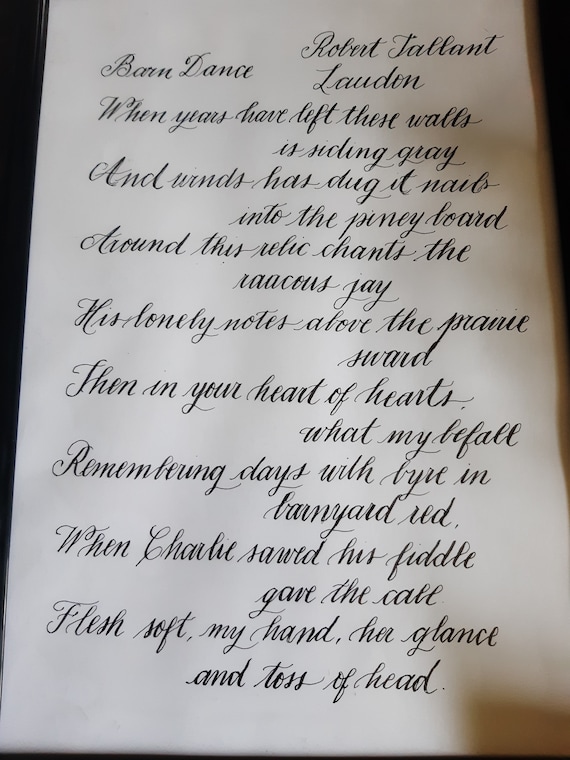 Barn Dance
Robert Tallant
Laudon
When years have left these walls
is siding gray
And winds has dug it nails
into the piney board
Around this relic chants the
raacous jay
His lonely notes above the prairie
sward
Then in your heart of hearts,
what my befall
Remembering days with byre in
barnyard red,
When Charlie sawed his fiddle
gave the call
Flesh soft, my hand, her glance
and toss of head.